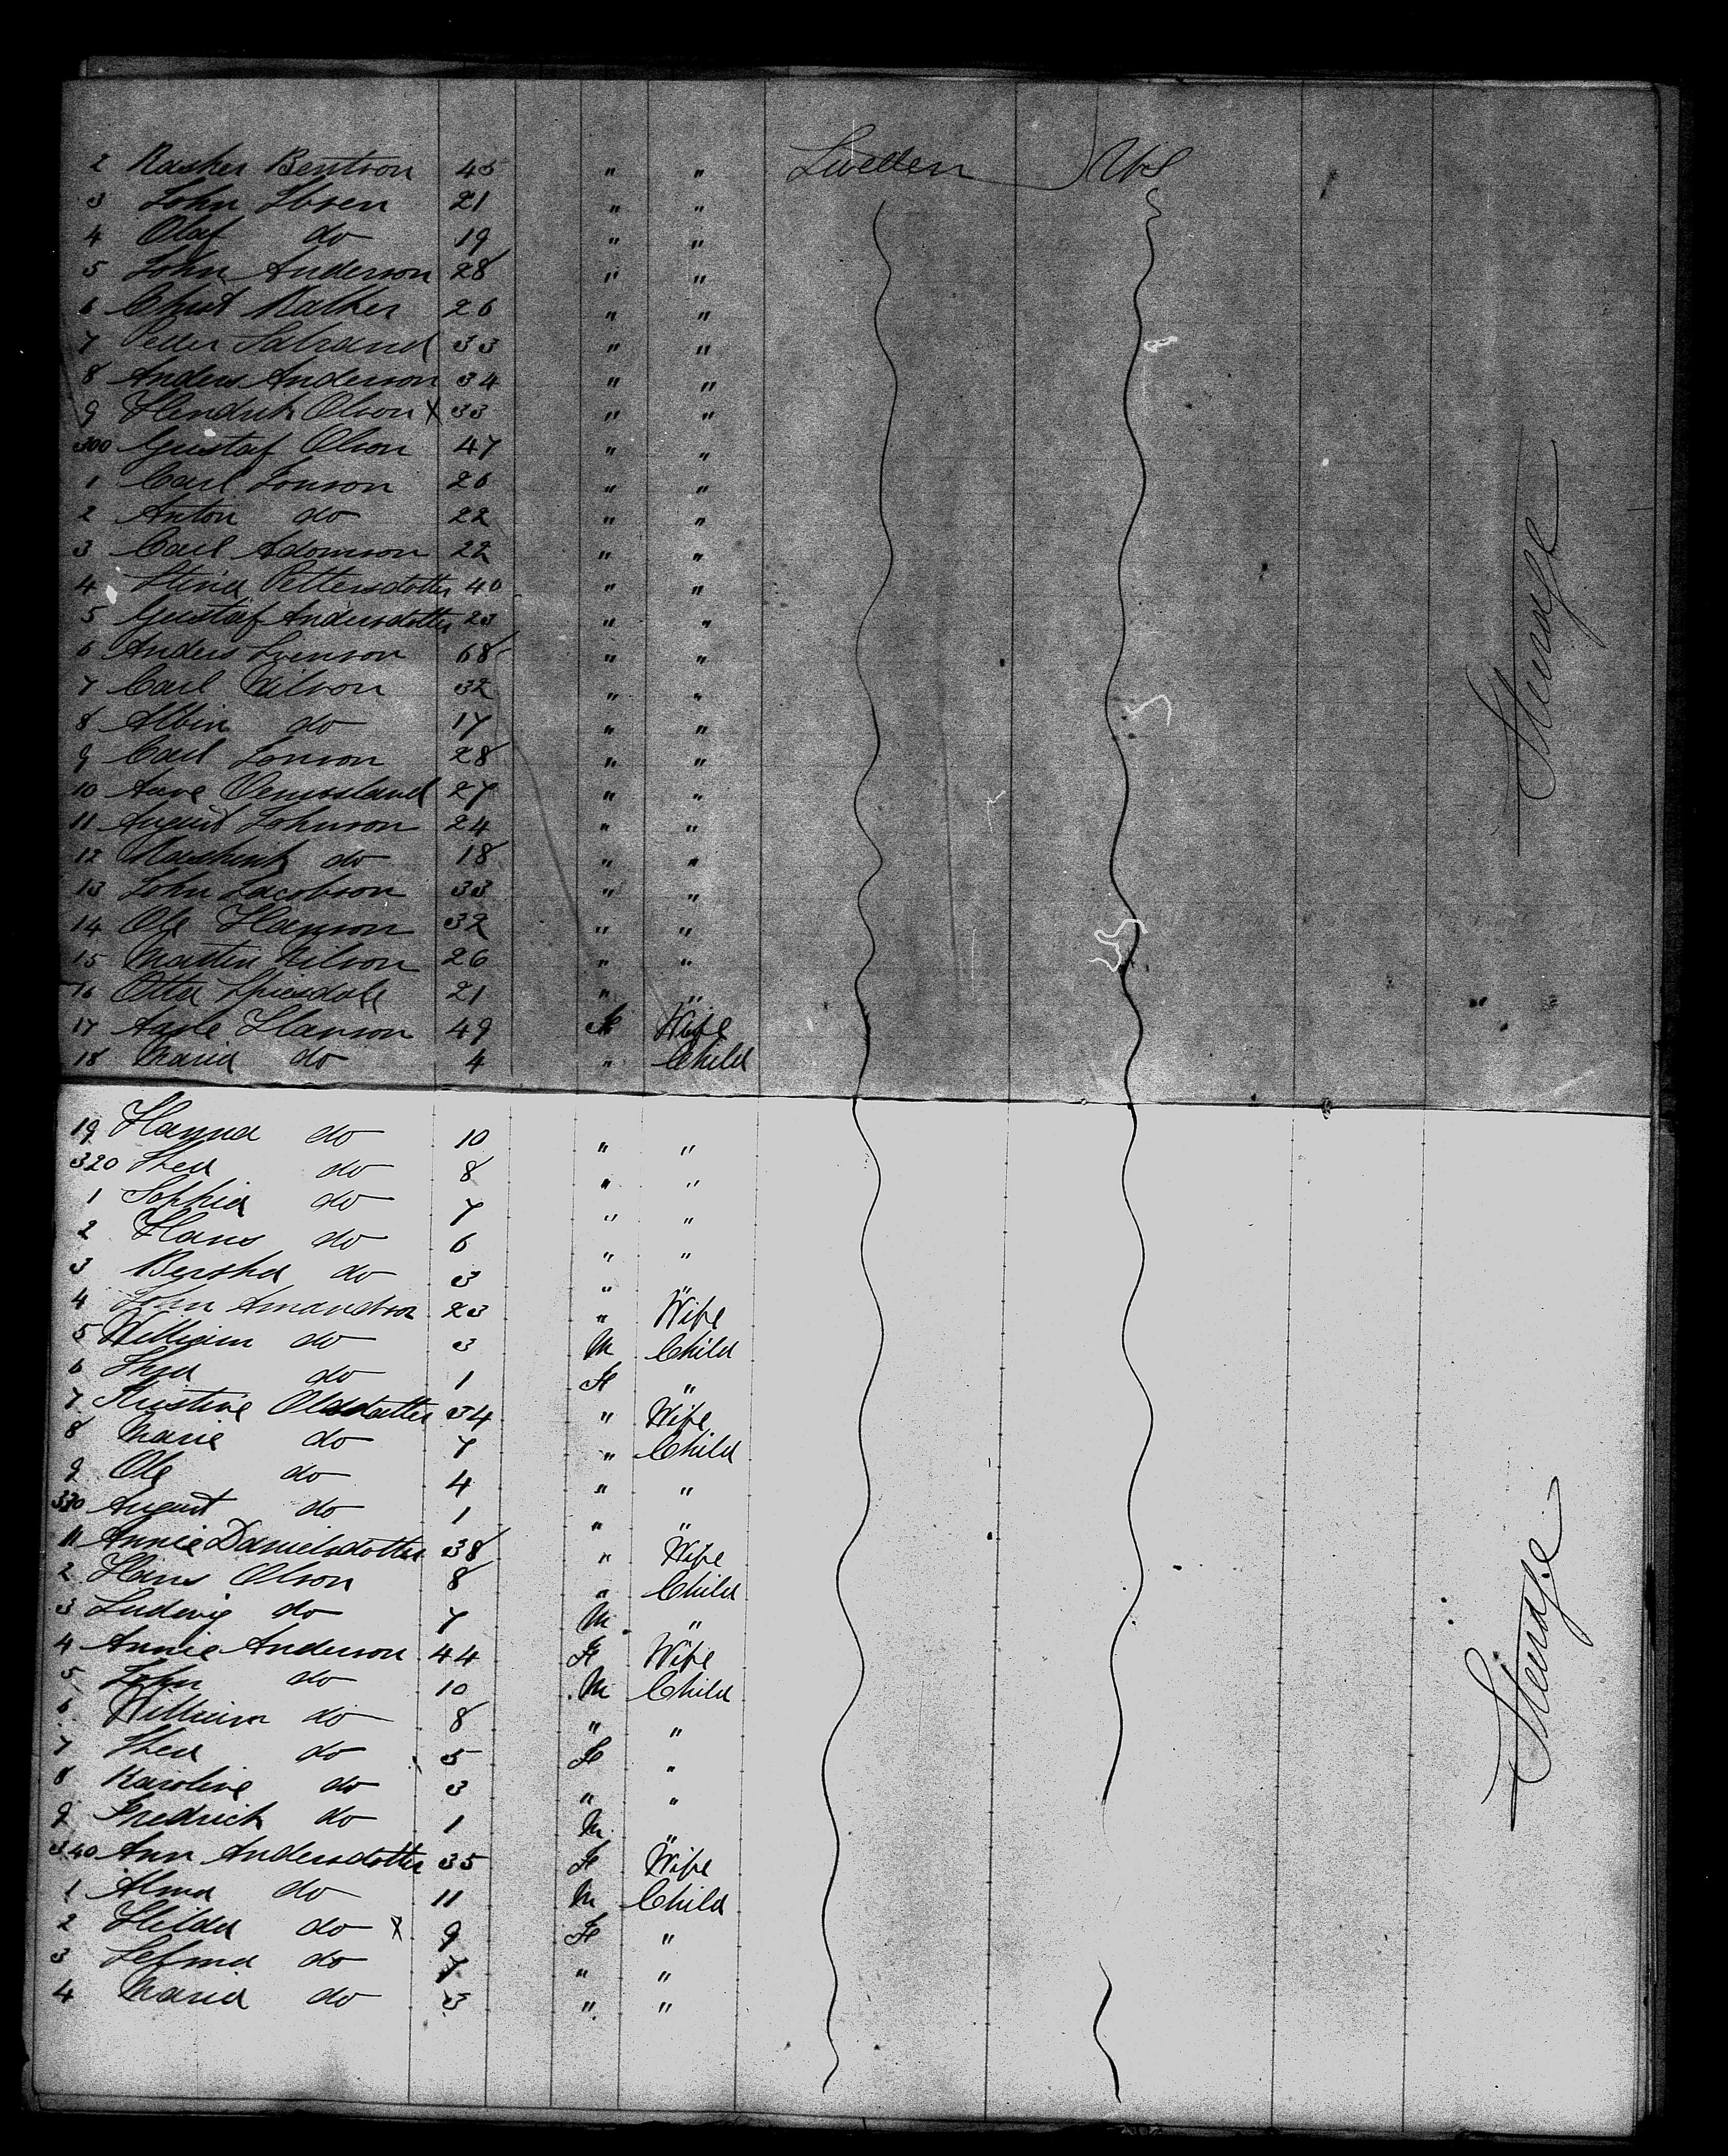 2 Rasher Bentson 45 " " Sweden US
3 John Ibsen 21 " "
4 Olaf do 19 " "
5 John Anderson 28 " "
6 Christ 26 " "
7 Peter 33 " "
8 Anders Anderson 34 " "
9 Hendrik Olson X 33 " "
300 Gustaf Olson 47 " "
1 Carl Jonson 26 " "
2 Anton do 22 " "
3 Carl Adomson 22 " "
4 Stina Pettersdotter 40 " "
5 Gustaf Andersdotter 23 " "
6 Anders Svenson 68 " "
7 Carl Nilson 32 " "
8 Albin do 17 " "
9 Carl Jonson 28 " "
10 27 " "
11 August Johnson 24 " "
12 do 18 " "
13 John Jacobson 33 " "
14 Ole Hanson 32 " "
15 Martin Nilson 26 " "
16 Otta 21 " "
17 Hanson 49 Fe Wife
18 Maria do 4 " Child
19 Hanna do 10 " "
320 do 8 " "
1 Sophia do 7 " "
2 Hans do 6 " "
3 Bertha do 3 " "
4 John 23 " Wife
5 William do 3 M Child
6 do 1 Fe "
7 Kristine Olsdatter 34 " Wife
8 Marie do 7 " Child
9 Ole do 4 " "
330 August do 1 " "
11 Annie Danielsdotter 38 " Wife
2 Hans Olson 8 " Child
3 Ludwig do 7 M "
4 Annie Anderson 44 Fe Wife
5 John do 10 M Child
6 William do 8 " "
7 do 5 Fe "
8 Karoline do 3 " "
9 Fredrick do 1 M "
340 Ann Andersdotter 35 Fe Wife
1 Alma do 11 M Child
2 Hilda do X 9 Fe "
3 do 7 " "
4 Maria do 3 " "
Steerage
Steerage